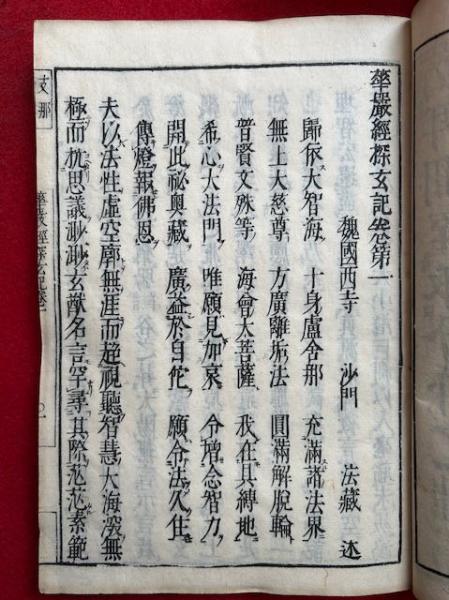 華嚴經探玄記卷第一
魏國西寺 沙門 法藏 述
歸依大智海 十身盧舍那 充滿諸法界
無上大慈尊 方廣離垢法 圓滿解脫輪
普賢文殊等 海會大菩薩 我在具縛地
希心大法門 唯願見加哀 令增念智力
開此祕奧藏 廣益於自佗 願令法久住
傳燈報佛恩
夫以法性虛空廓無涯而超視聽智慧大海深無
極而抗思議眇眇玄猷名言罕尋其際茫茫素範
支那
華嚴經探玄記卷一